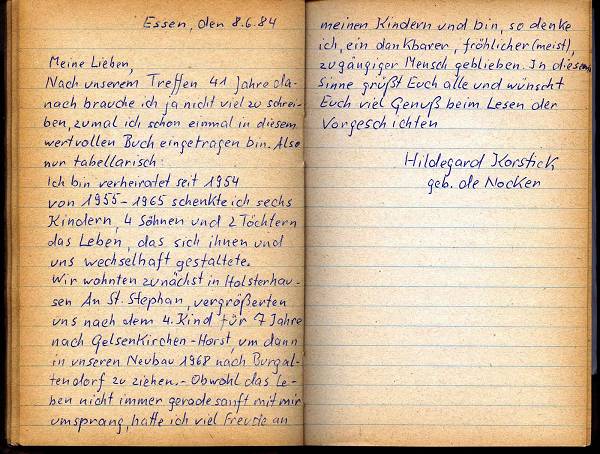 Essen, den 8.6.84
Meine Lieben,
Nach unserem Treffen 41 Jahre da-
nach brauche ich ja nicht viel zu schrei-
ben, zumal ich schon einmal in diesem
wertvollen Buch eingetragen bin. Also
nur tabellarisch:
Ich bin verheiratet seit 1954
von 1955-1965 schenkte ich sechs
Kindern, 4 Söhnen und 2 Töchtern
das Leben, das sich ihnen und
uns wechselhaft gestaltete.
Wir wohnten zunächst in Holsterhau-
sen An St. Stephan, vergrößerten
uns nach dem 4. Kind für 7 Jahre
nach Gelsenkirchen-Horst, um dann
in unseren Neubau 1968 nach Burgal-
tendorf zu ziehen.- Obwohl das Le-
ben nicht immer gerade sanft mit mir
umsprang, hatte ich viel Freude an
meinen Kindern und bin, so denke
ich, ein dankbarer, fröhlicher (meist),
zugängiger Mensch geblieben. In diesem
Sinne grüßt Euch alle und wünscht
Euch viel Genuß beim Lesen der
Vorgeschichten
Hildegard Korstick
geb. de Nocker